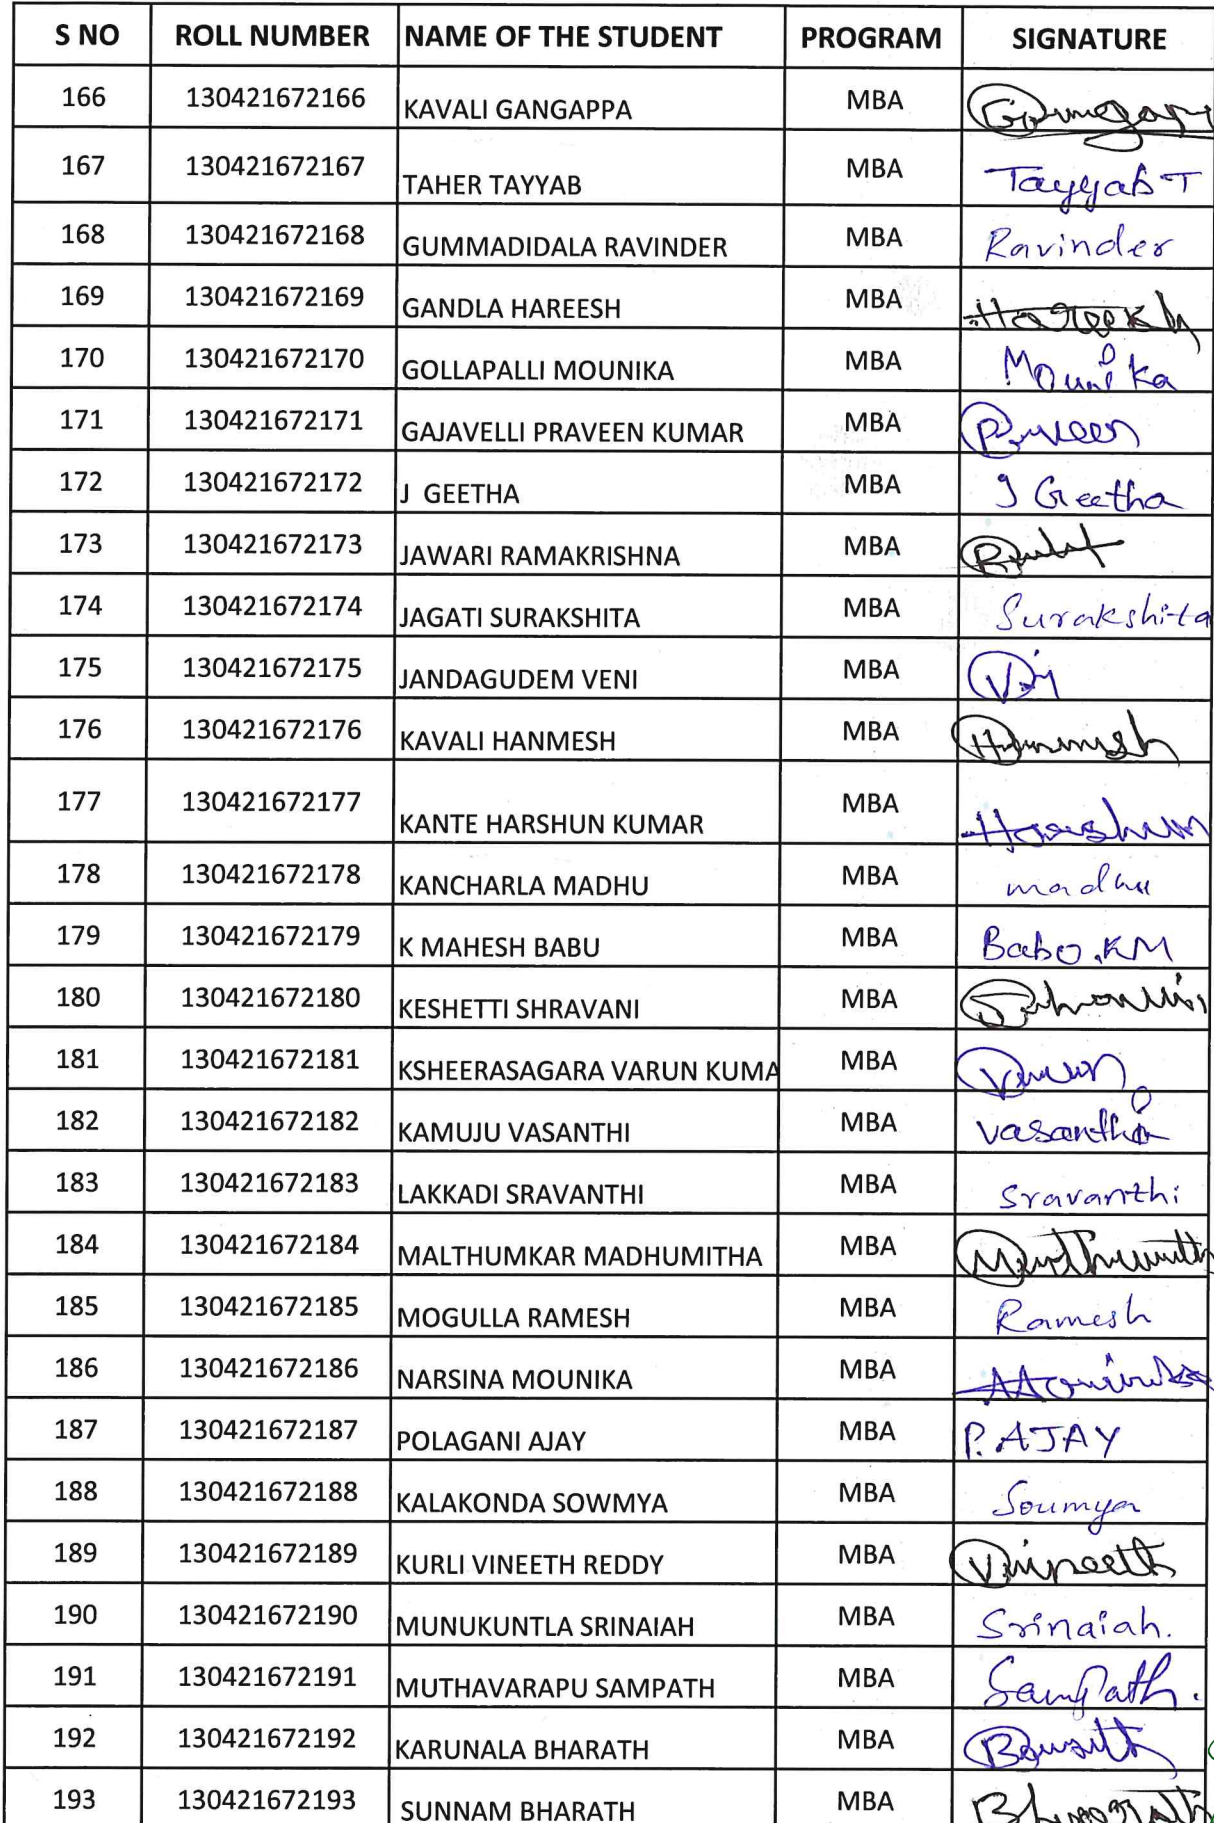 S NO ROLL NUMBER NAME OF THE STUDENT PROGRAM SIGNATURE
166 130421672166 KAVALI GANGAPPA MBA
167 130421672167 TAHER TAYYAB MBA Tayyab T
168 130421672168 GUMMADIDALA RAVINDER MBA Ravinder
169 130421672169 GANDLA HAREESH MBA
170 130421672170 GOLLAPALLI MOUNIKA MBA Mounika
171 130421672171 GAJAVELLI PRAVEEN KUMAR MBA
172 130421672172 J GEETHA MBA J Geetha
173 130421672173 JAWARI RAMAKRISHNA MBA
174 130421672174 JAGATI SURAKSHITA MBA Surakshita
175 130421672175 JANDAGUDEM VENI MBA
176 130421672176 KAVALI HANMESH MBA
177 130421672177 KANTE HARSHUN KUMAR MBA
178 130421672178 KANCHARLA MADHU MBA madhu
179 130421672179 K MAHESH BABU MBA Babo.KM
180 130421672180 KESHETTI SHRAVANI MBA
181 130421672181 KSHEERASAGARA VARUN KUMA MBA
182 130421672182 KAMUJU VASANTHI MBA Vasanthi
183 130421672183 LAKKADI SRAVANTHI MBA Sravanthi
184 130421672184 MALTHUMKAR MADHUMITHA MBA
185 130421672185 MOGULLA RAMESH MBA Ramesh
186 130421672186 NARSINA MOUNIKA MBA
187 130421672187 POLAGANI AJAY MBA P. AJAY
188 130421672188 KALAKONDA SOWMYA MBA Soumya
189 130421672189 KURLI VINEETH REDDY MBA Vineeth
190 130421672190 MUNUKUNTLA SRINAIAH MBA Srinaiah.
191 130421672191 MUTHAVARAPU SAMPATH MBA Sampath.
192 130421672192 KARUNALA BHARATH MBA
193 130421672193 SUNNAM BHARATH MBA